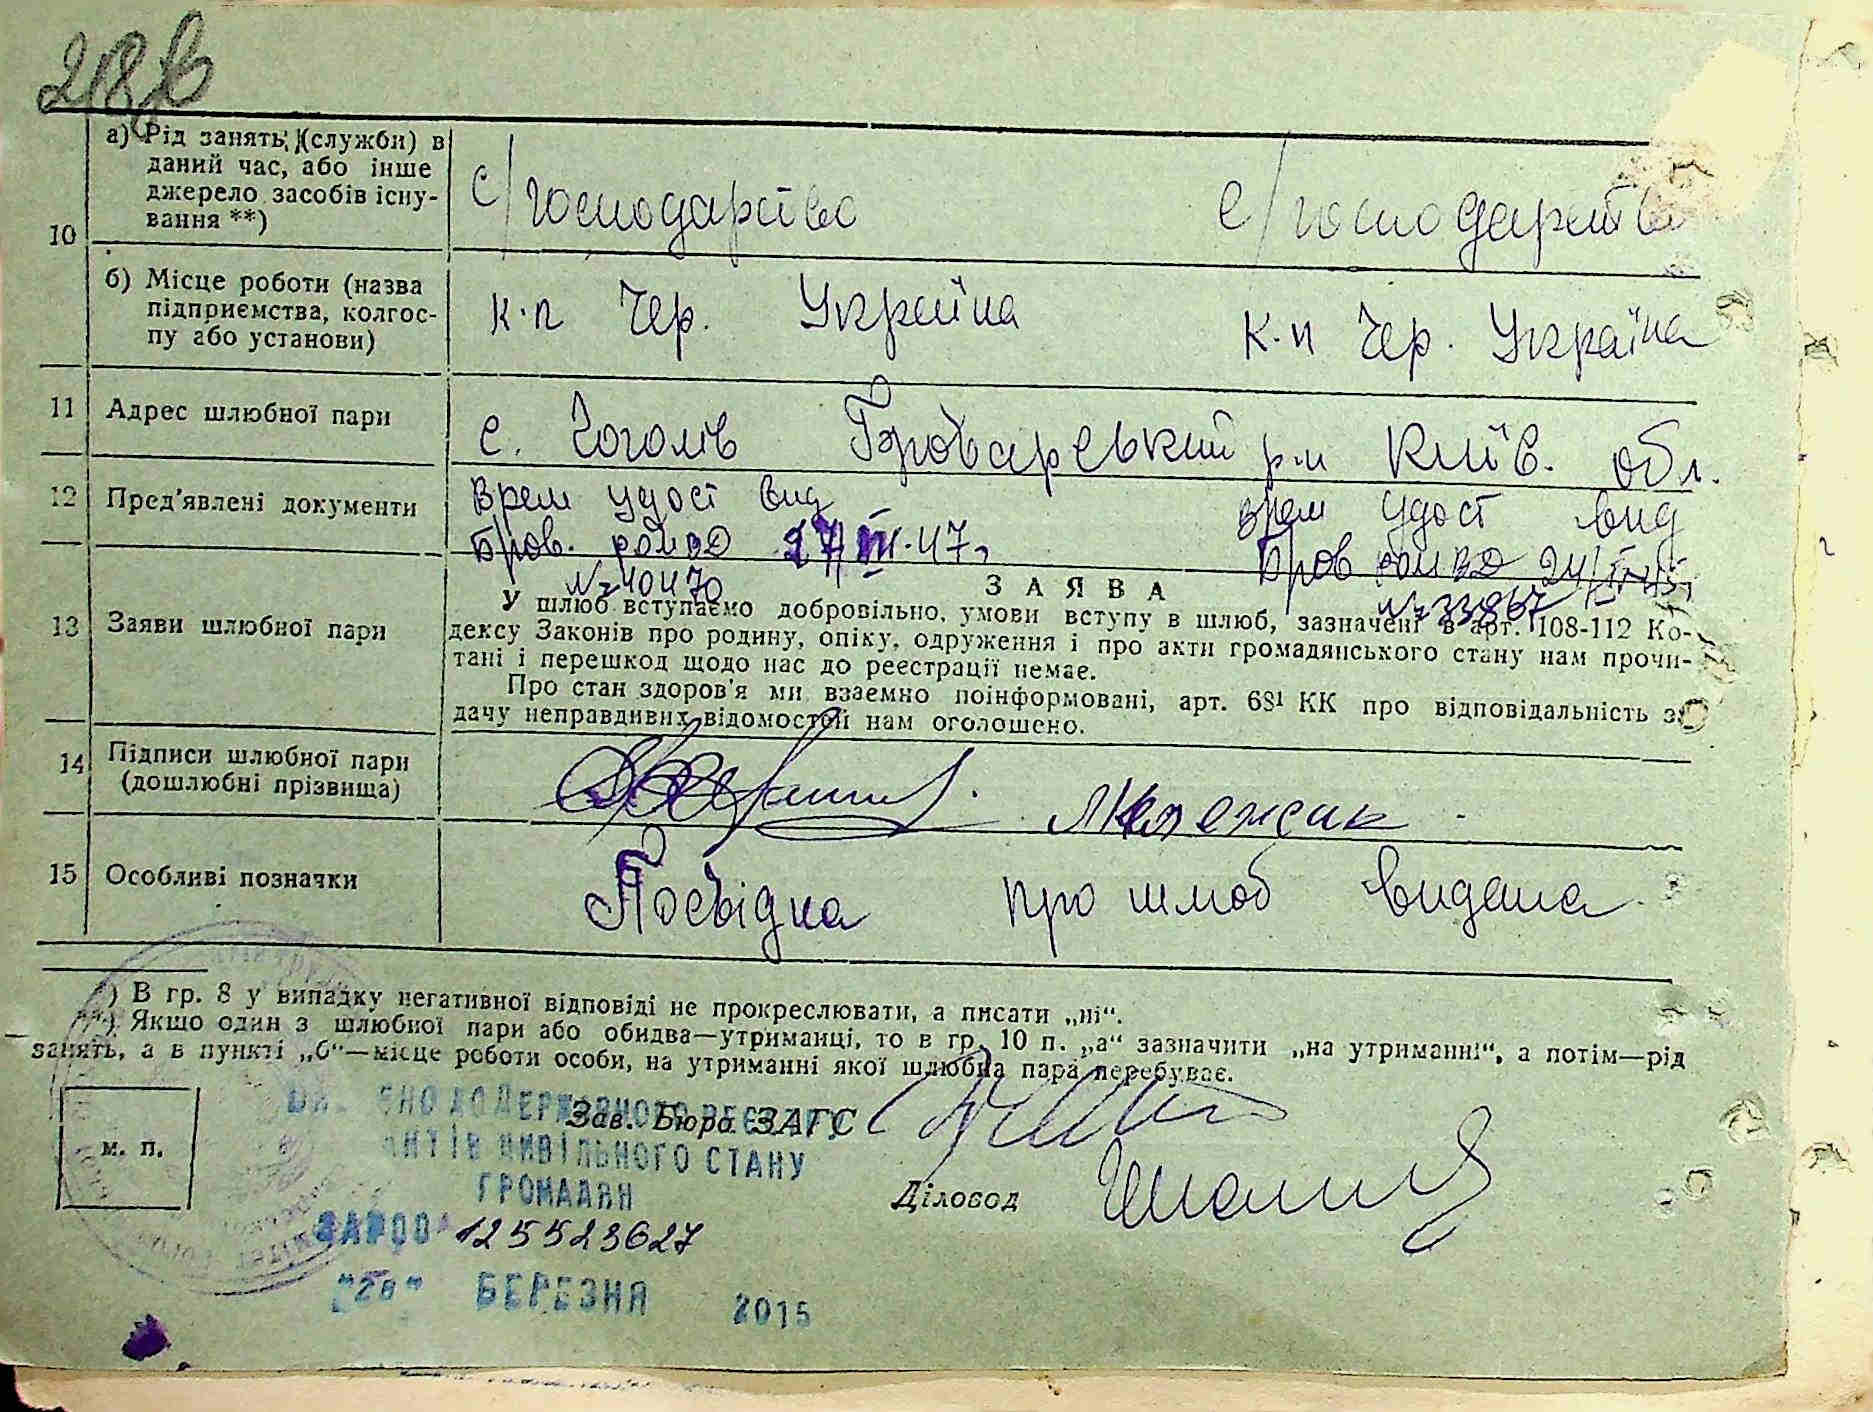 218 в
10
а) Рід занять (служби) в
даний час, або інше
джерело засобів існу-
вання **)
с/господарство
с/господарство
б) Місце роботи (назва
підприємства, колгос-
пу або установи)
к-п Чер. Україна
к-п Чер. Україна
11 Адрес шлюбної пари
с. Гоголів Броварський р-н Київ. обл.
12 Пред'явлені документи
Врем удост вид
Бров. 27/III-47.
№ 40470
Врем удост вид
Бров
№ 33867
13 Заяви шлюбної пари
ЗАЯВА
У шлюб вступаємо добровільно, умови вступу в шлюб, зазначені в арт. 108-112 Ко-
дексу Законів про родину, опіку, одруження і про акти громадянського стану нам прочи-
тані і перешкод щодо нас до реєстрації немає.
Про стан здоров'я ми взаємно поінформовані, арт. 68¹ КК про відповідальність за
дачу неправдивих відомостей нам оголошено.
14 Підписи шлюбної пари
(дошлюбні прізвища)
15 Особливі позначки
Посвідка про шлюб видана
*) В гр. 8 у випадку негативної відповіді не прокреслювати, а писати „ні“.
**) Якщо один з шлюбної пари або обидва—утриманці, то в гр. 10 п. „а“ зазначити „на утриманні“, а потім—рід
занять, а в пункті „б“—місце роботи особи, на утриманні якої шлюбна пара перебуває.
м. п.
Зав. Бюро ЗАГС
ДО ДЕРЖАВНОГО РЕЄСТРУ
АКТІВ ЦИВІЛЬНОГО СТАНУ
ГРОМАДЯН
Діловод
125523627
БЕРЕЗНЯ 2015